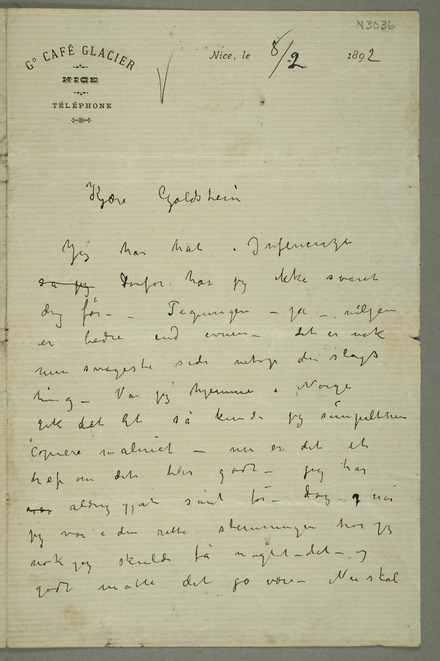 N3036
Gᴰ CAFÉ GLACIER
NICE
TÉLÉPHONE
Nice, le 8/2 1892
Kjære Goldstein
Jeg har hat Influenza
så jeg Derfor har jeg ikke svaret
dig før – Tegningen – ja – viljen
er bedre end evnen – det er nok
min svageste side netop den slags
ting – Var jeg hjemme i Norge
gik det let så kunde jeg simpelthen
copiere maleriet – nu er det et
træf om det blir godt – jeg har
aldrig gjort sånt før – dog når
jeg var i den rette stemningen har jeg
nok jeg skulde få noget – det – og
godt måtte det jo være – Nu skal